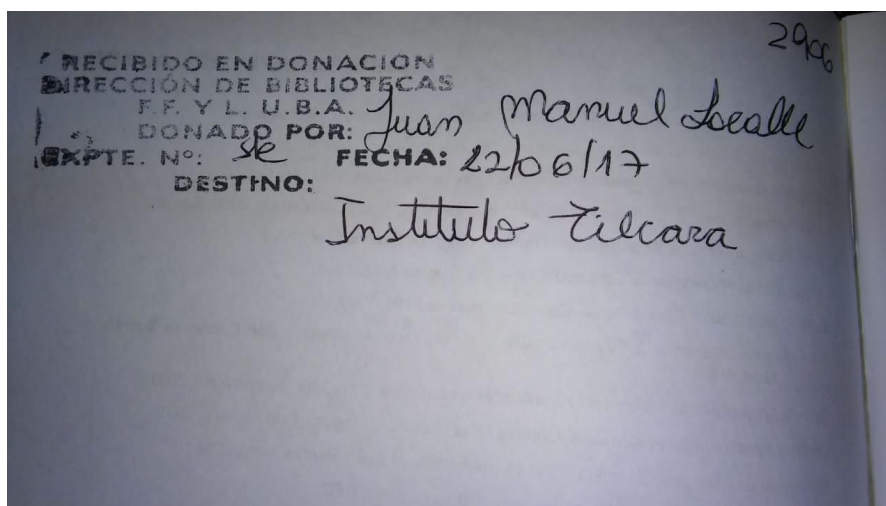 2906
RECIBIDO EN DONACIÓN
DIRECCIÓN DE BIBLIOTECAS
F.F. Y L. U.B.A.
DONADO POR: Juan Manuel
EXPTE. Nº: FECHA: 22/06/17
DESTINO:
Instituto Tilcara